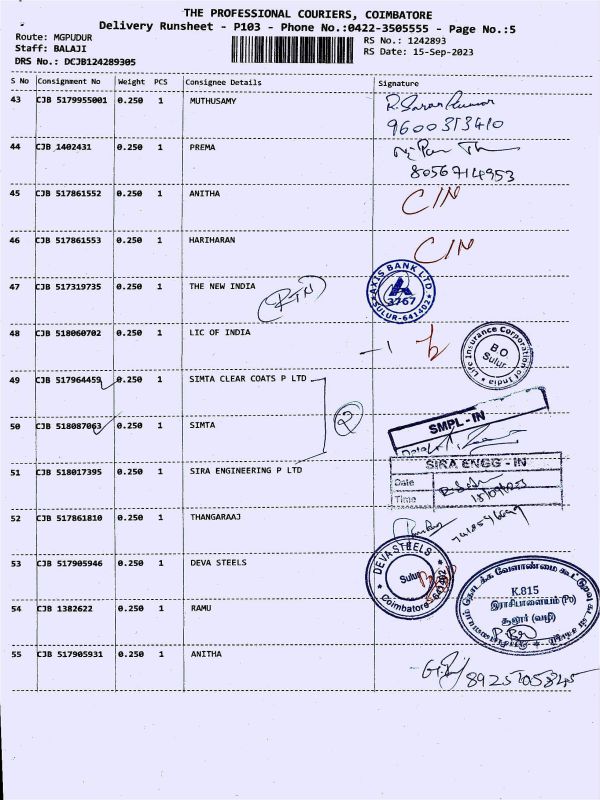 THE PROFESSIONAL COURIERS, COIMBATORE
Delivery Runsheet - P103 - Phone No.:0422-3505555 - Page No.:5
Route: MGPUDUR RS No.: 1242893
Staff: BALAJI RS Date: 15-Sep-2023
DRS No.: DCJB124289305
S No Consignment No Weight PCS Consignee Details Signature
43 CJB 5179955001 0.250 1 MUTHUSAMY
9600313410
44 CJB 1402431 0.250 1 PREMA
8056714953
45 CJB 517861552 0.250 1 ANITHA C/N
46 CJB 517861553 0.250 1 HARIHARAN C/N
AXIS BANK LTD.
47 CJB 517319735 0.250 1 THE NEW INDIA RTN 3767
SULUR-641402
48 CJB 518060702 0.250 1 LIC OF INDIA
Life Insurance Corporation of India
B O
Sulur
49 CJB 517964459 0.250 1 SIMTA CLEAR COATS P LTD
50 CJB 518087063 0.250 1 SIMTA 2 SMPL - IN
Date
51 CJB 518017395 0.250 1 SIRA ENGINEERING P LTD SIRA ENGG - IN
Date
Time
52 CJB 517861810 0.250 1 THANGARAAJ
53 CJB 517905946 0.250 1 DEVA STEELS DEVA STEELS
Sulur
Coimbatore 641402
54 CJB 1382622 0.250 1 RAMU
K.815
இராசிபாளையம் (Po)
சூலூர் (வழி)
55 CJB 517905931 0.250 1 ANITHA
8925105845